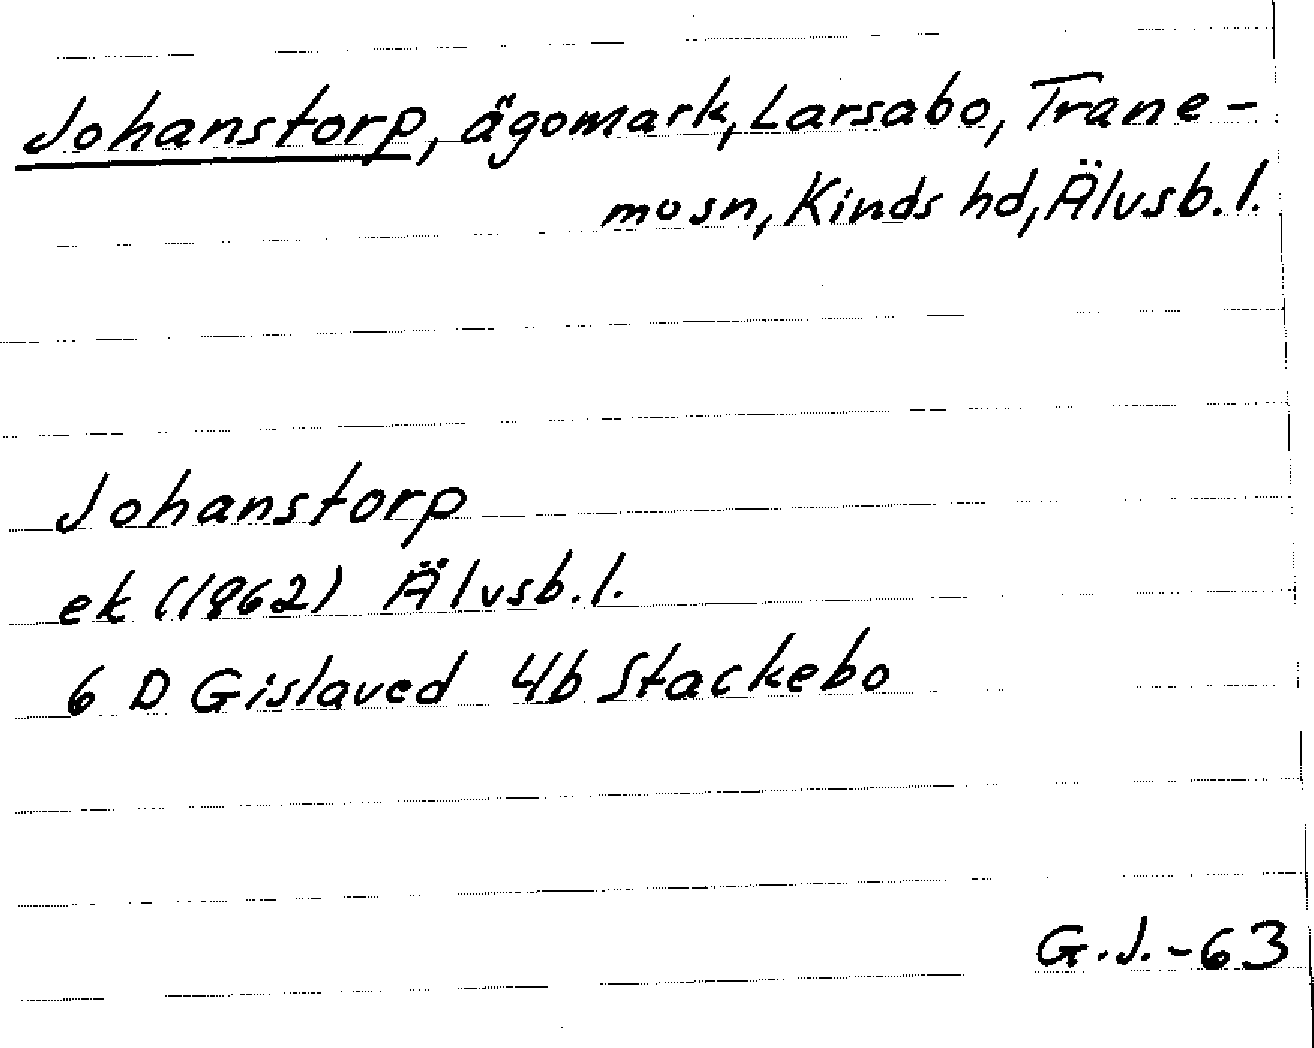 Johanstorp, ägomark, Larsabo, Trane-
mosn, Kinds hd, Älvsb. l.
Johanstorp
ek (1862) Älvsb. l.
6 D Gislaved 4b Stackebo
G.J.-63